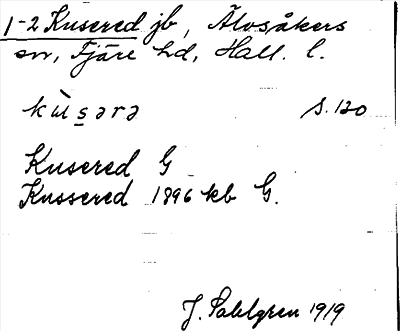 1-2 Kusered jb, Älvsåkers
sn, Fjäre hd, Hall. l.
kùsərə s. 120
Kusered G
Kussered 1896 kb G.
J. Sahlgren 1919